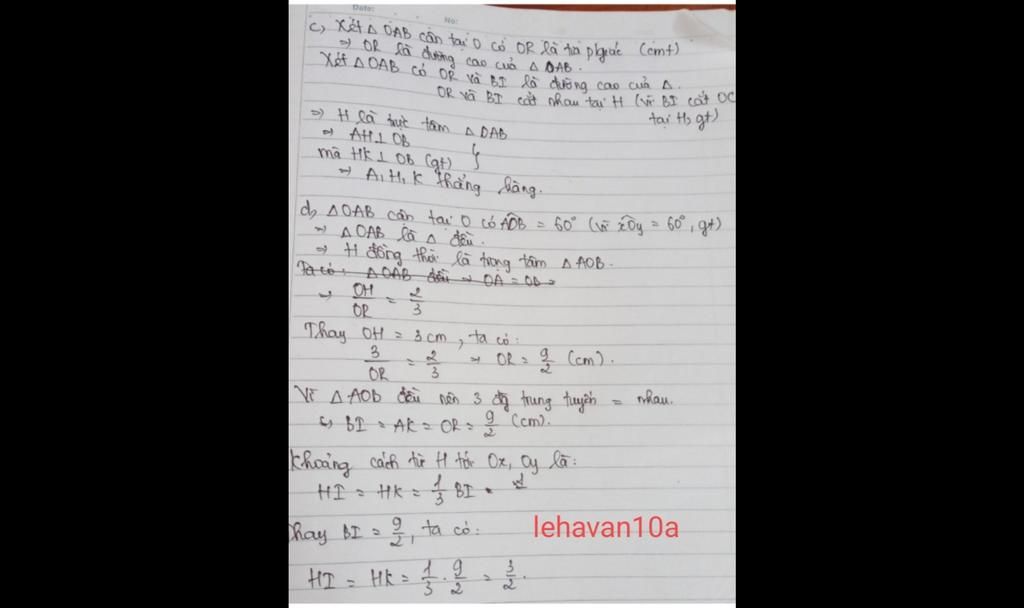 Date: No:
c, Xét △ OAB cân tại O có OR là tia pgiác (cmt)
⇒ OR là đường cao của △ OAB.
Xét △OAB có OR và BI là đường cao của △.
OR và BI cắt nhau tại H (vì BI cắt OC
tại H, gt)
⇒ H là trực tâm △ OAB
⇒ AH ⊥ OB
mà HK ⊥ OB (gt) }
⇒ A, H, K thẳng hàng.
d, △OAB cân tại O có AOB = 60° (vì xOy = 60°, gt)
⇒ △OAB là △ đều.
⇒ H đồng thời là trọng tâm △ AOB.
Ta có: △OAB đều ⇒ OA = OB ⇒
⇒ OH/OR = 2/3
Thay OH = 3cm, ta có:
3/OR = 2/3 ⇒ OR = 9/2 (cm).
Vì △ AOB đều nên 3 đg trung tuyến = nhau.
⇒ BI = AK = OR = 9/2 (cm).
Khoảng cách từ H tới Ox, Oy là:
HI = HK = 1/3 BI
Thay BI = 9/2, ta có:
lehavan10a
HI = HK = 1/3 . 9/2 = 3/2.